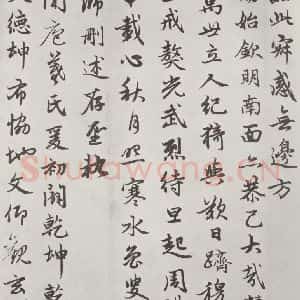 如此寂感無邊方
始欽明南面亦恭己大哉
萬世立人紀猗歟歎日躋穆
止戒獒光武烈待旦起周
千載心秋月照寒水魯叟
師刪述存聖軌
聞庖羲氏爰初闢乾坤乾
德坤布協地文仰觀玄
Shufawang.cn